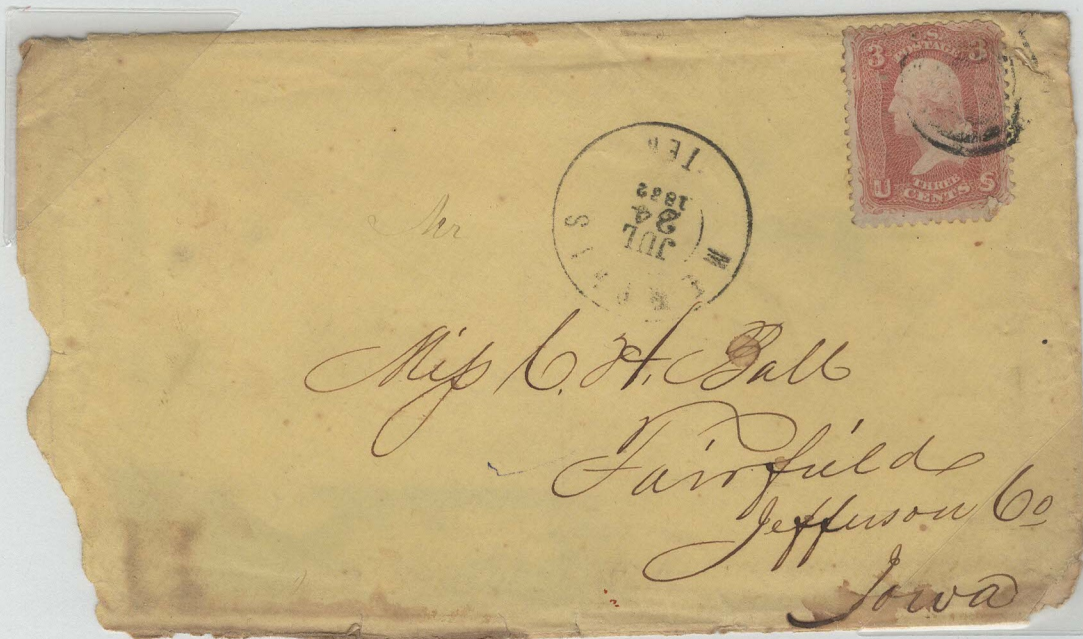 U.S. POSTAGE
3 3
THREE
U CENTS S
MEMPHIS
JUL
24
1862
TEN
Mr
Miss C. H. Ball
Fairfield
Jefferson Co
Iowa